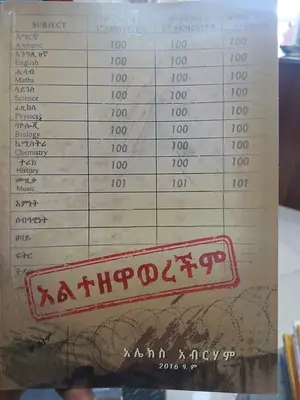 SUBJECT
አማርኛ
Amharic 100 100 100
እንግሊዝኛ
English 100 100 100
ሒሳብ
Maths 100 100 100
ሳይንስ
Science 100 100 100
ፊዚክስ
Physics 100 100 100
ባዮሎጂ
Biology 100 100 100
ኬሚስትሪ
Chemistry 100 100 100
ታሪክ
History 100 100 100
ሙዚቃ
Music 101 101 101
እምነት
ሰብዓዊነት
ፀባይ
ፍቅር
አልተዘዋወረችም
አሌክስ አብርሃም
2016 ዓ.ም